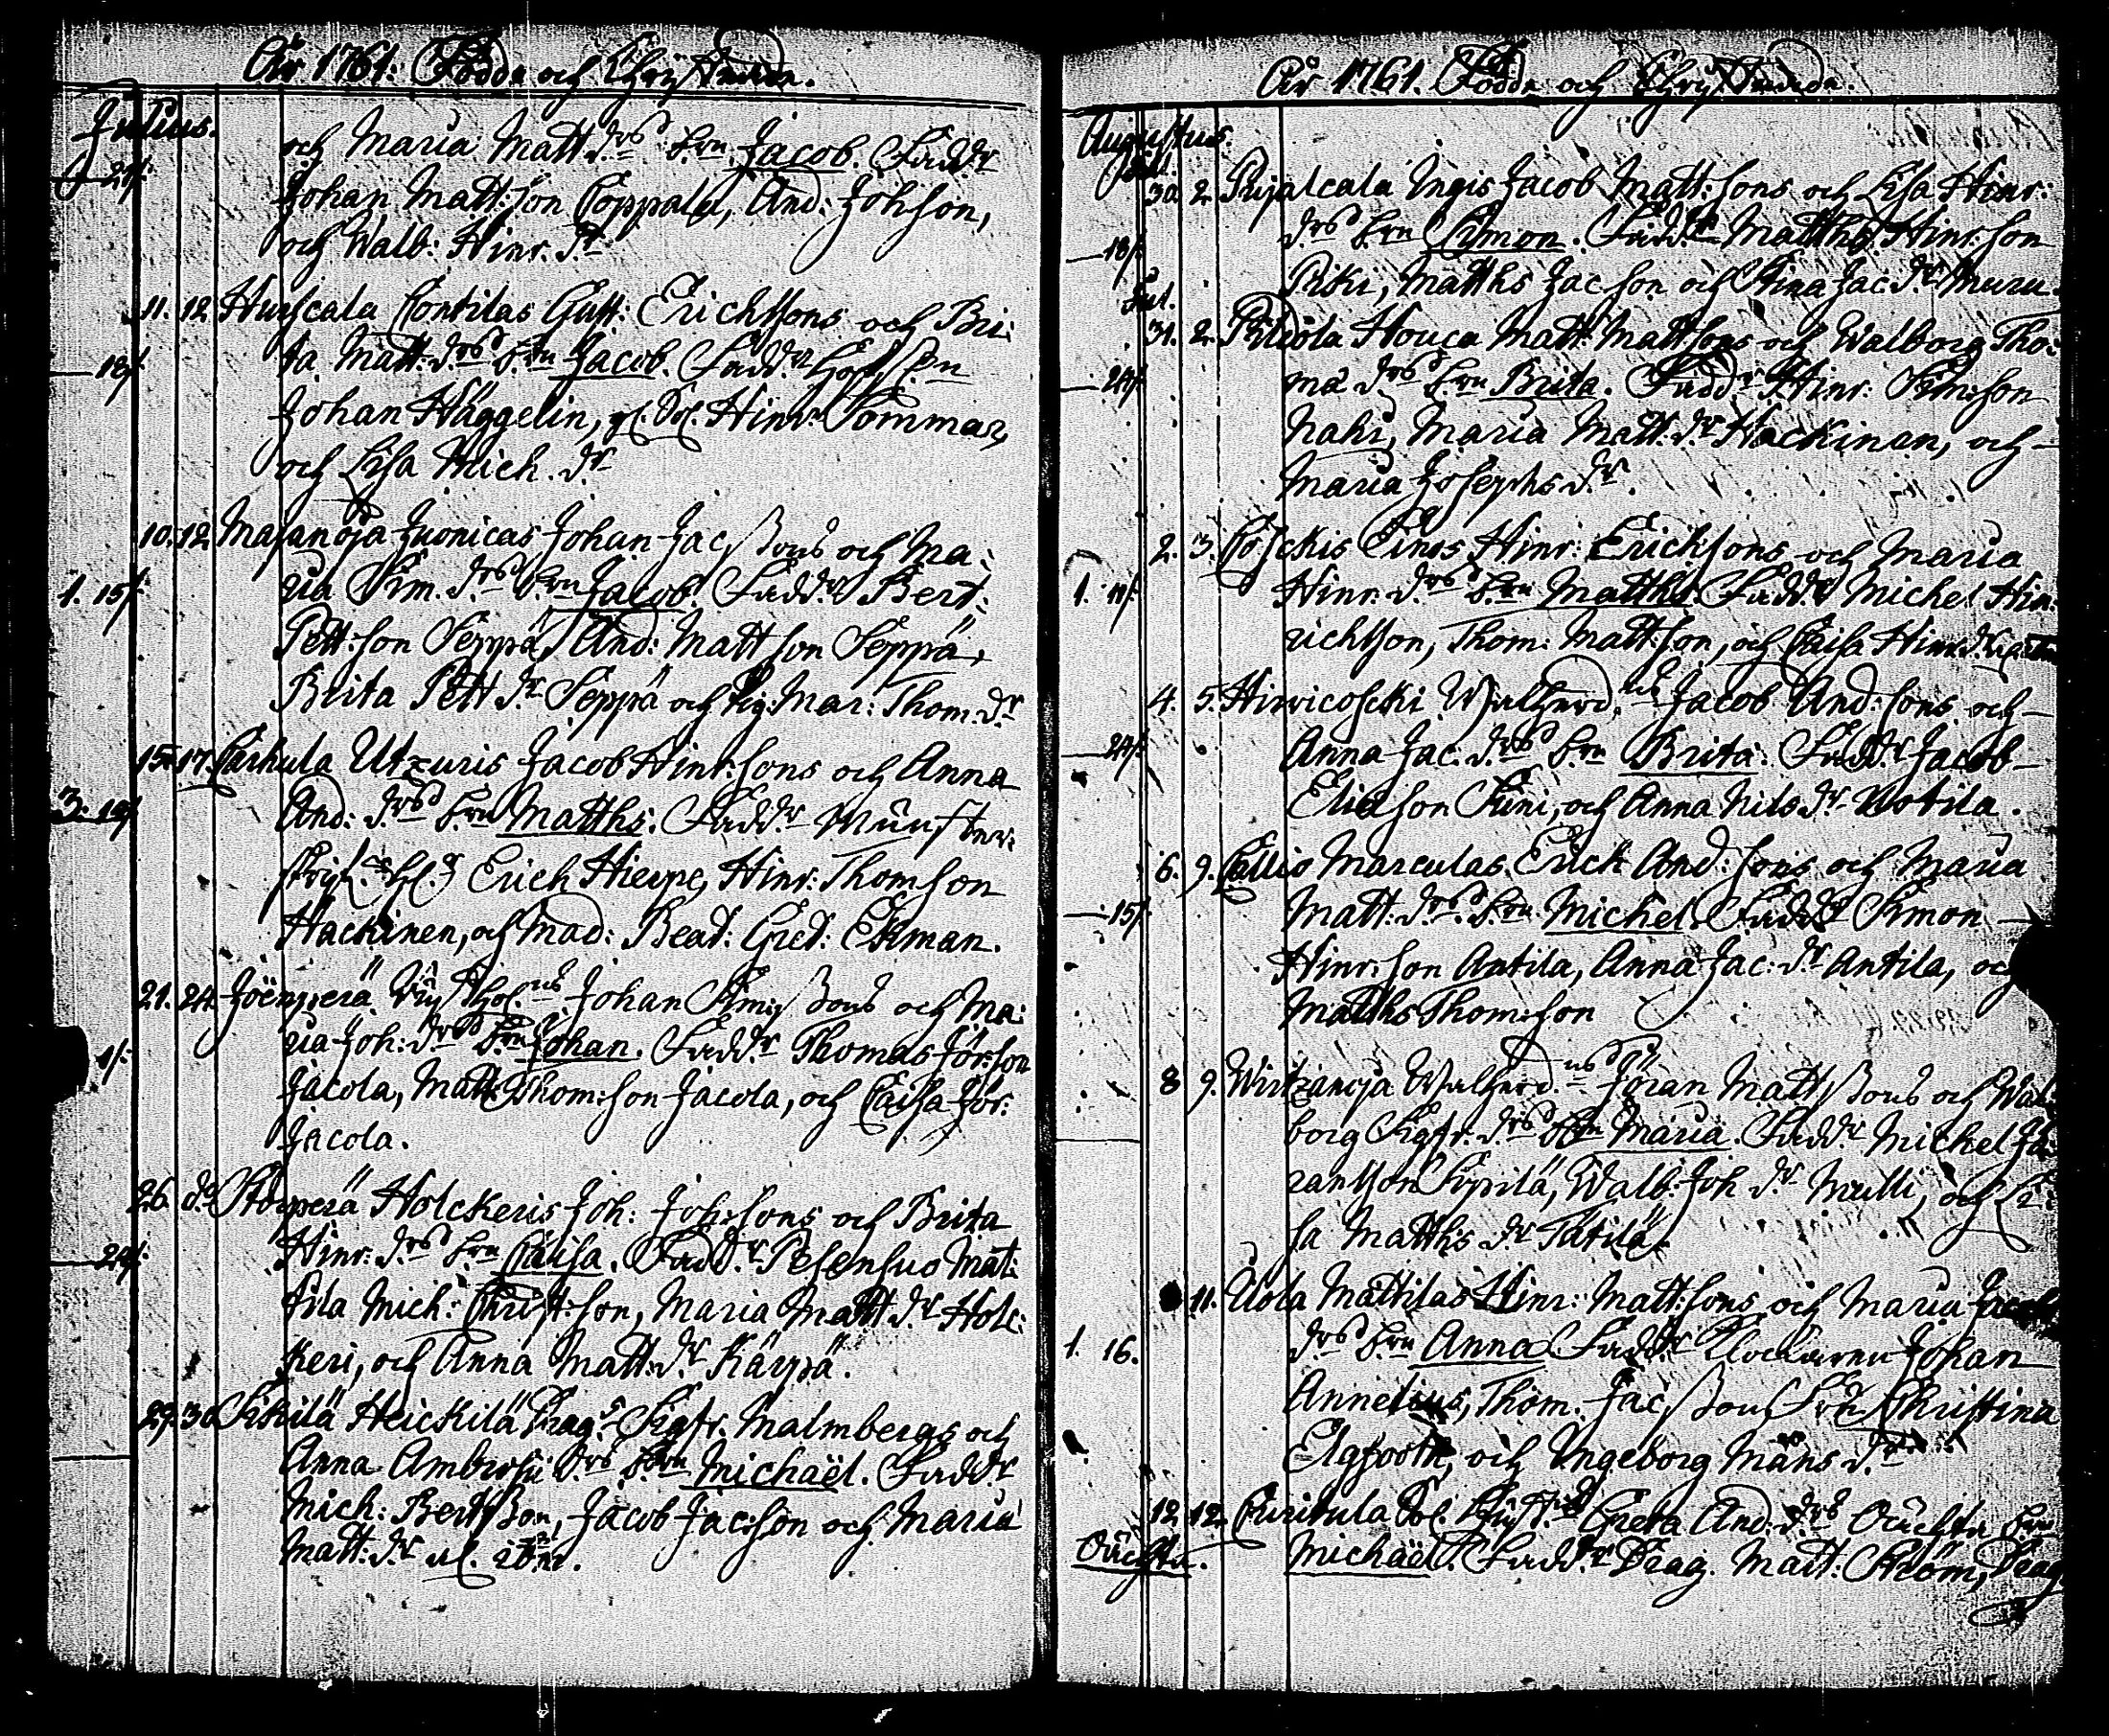 År 1761: Födde och Chrystnade.
Julius.
och Maria Matt. drs. b.rn Jacob. Fadd.r
24/.
Johan Matt:son Coppala, And: Joh:son,
och Walb: Hinr. dr
11. 12. Hurscala Contilas Gutt: Erichssons och Bri:
18/. ta Matt: drs b.rn Jacob. Fadd.r
Johan Häggelin, Hinr: Sommar,
och Lisa Mich. dr
10. 12. Majanoja Juonicas Johan Jac:ssons och Ma:
1. 15/. ria Sim. drs b.rn Jacob. Fadd.r Bert:
Pett:son Seppä, And: Matt:son Seppä,
Brita Pett dr Seppä och Pig: Mar: Thom. dr
15. 17. Carhula Utzuris Jacob Hinr:sons och Anna
3. 18/. And: drs b.rn Matths. Fadd.r Münster:
Erich Hierpe, Hinr. Thom:son
Hackinen, och Mad: Beat: Gret: Ekman.
21. 24. Joënperä Johan Sim:ssons och Ma:
1/. ria Joh: drs b.rn Johan. Fadd.r Thomas Jör:son
Jacola, Matt. Thom:son Jacola, och Caisa Jör:
Jacola.
26. do Storperä Holckeris Joh: Joh:sons och Brita
24/. Hinr: drs b.rn Caisa. Fadd.r Pesensuo Mat:
tila Mich: Christ:son, Maria Matt: dr Hole:
keri, och Anna Matt: dr Kärpä.
29. 30. Sikilä Heickilä Drag.s Sigfr. Malmbergs och
Anna Ambrosii drs b.rn Michaël. Fadd.r
Mich: Bertsson, Jacob Jac:son och Maria
Matt: dr
År 1761. Födde och Chrystnade.
Augustus.
Jul.
30. 2. Pujalcala Ingis Jacob Matt:sons och Lisa Hinr:
18/. drs b.rn Simon. Fadd.r Matths Hinr:son
Piki, Matths Jac:son och Stina Jac: dr Muru.
Jul.
31. 2. Houca Matt: Matt:sons och Walborg Tho:
24/. ma drs b.rn Brita. Fadd.r Hinr: Sim:son
Nahi, Maria Matt: dr Hackinan, och
Maria Josephs dr.
2. 3. Coskis Einos Hinr: Erichsons och Maria
1. 11/. Hinr. drs b.rn Matths. Fadd.r Michel Hin:
richsson, Thom: Matt:son, och Caisa Hinr. dr
4. 5. Hirvicoscki Jacob And:sons och
24/. Anna Jac. drs b.rn Brita: Fadd.r Jacob
Eliæson Suni, och Anna Nils dr Uotila.
6. 9. Callio Marculas Erich And:sons och Maria
15/. Matt: drs b.rn Michel. Fadd.r Simon
Hinr:son Antila, Anna Jac: dr Antila, och
Matths Thom:son
8 9. Wirtzanoja Jöran Matt:ssons och Wal:
borg Sigfr. drs b.rn Maria. Fadd.r Michel Jö:
ransson Sipilä, Walb: Joh dr Mulli, och Li:
sa Matths dr Tätilä.
11. Uola Mattilas Hinr: Matt:sons och Maria Jacobs
1. 16. drs b.rn Anna. Fadd.r Klockaren Johan
Annelius, Thom: Jac:sson, Christina
Elgfooth, och Ingeborg Måns dr
12. 12. Curitula Greta And: drs Oächta b.rn
Oächta. Michaël. Fadd.r Drag. Matt: Ström, Drag